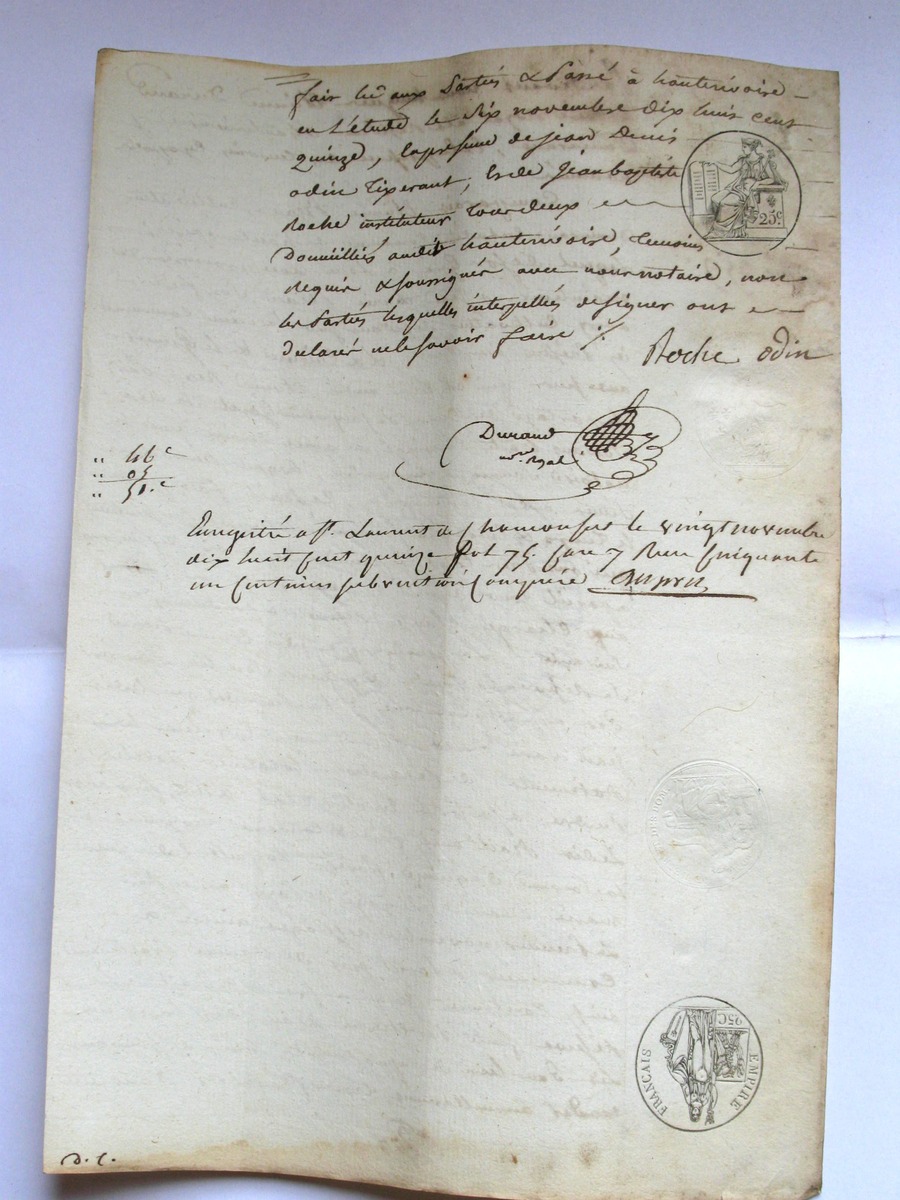 fait lu aux Parties & Passé à hauterivoire
en l'étude le Six novembre dix huit cent
quinze, En présence de jean Denis
odin Tixerant, Et de jean baptiste
Roche instituteur tous deux
Domiciliés audit hauterivoire, Temoins
Requis & soussignés avec nous notaire, non
les Parties lesquelles interpellées de signer ont
declaré ne le savoir faire ./.
25c
Roche odin
Durand
nore Royal
" 46 c
" 05
" 51. c
Enregistré a St. Laurent de Chamousset le vingt novembre
dix huit cent quinze fol 75. case 7 Reçu Cinquante
un Centimes subvention Comprise
25C
EMPIRE FRANCAIS
D. C.